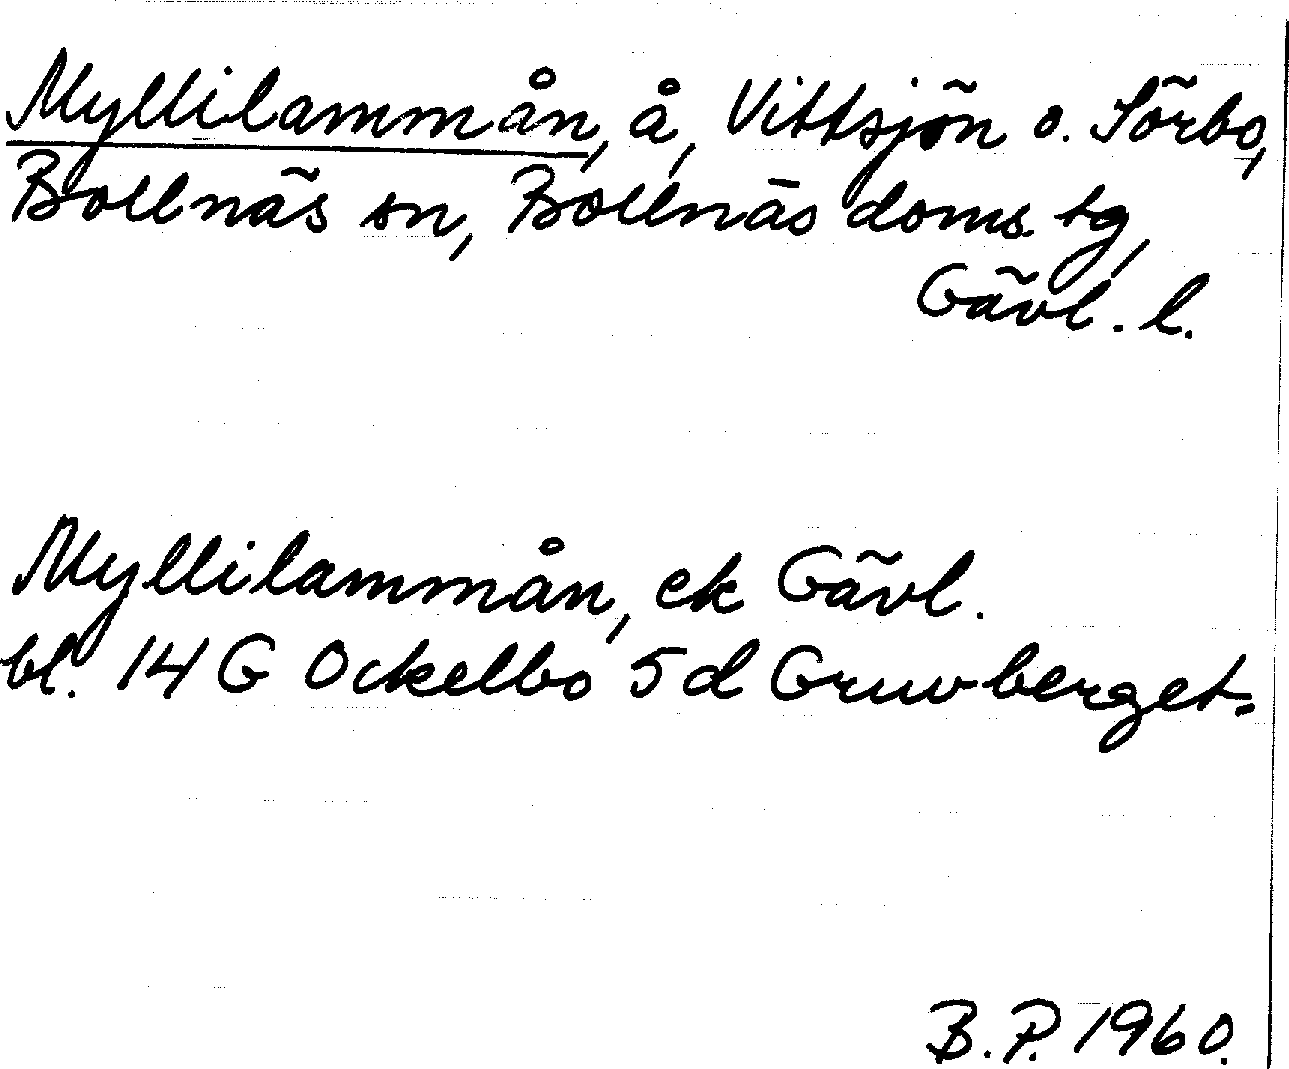 Myllilammån, å, Vittsjön o. Sörbo,
Bollnäs sn, Bollnäs doms. tg,
Gävl. l.
Myllilammån, ek Gävl.
bl. 14 G Ockelbo 5 d Gruvberget.
B.P. 1960.